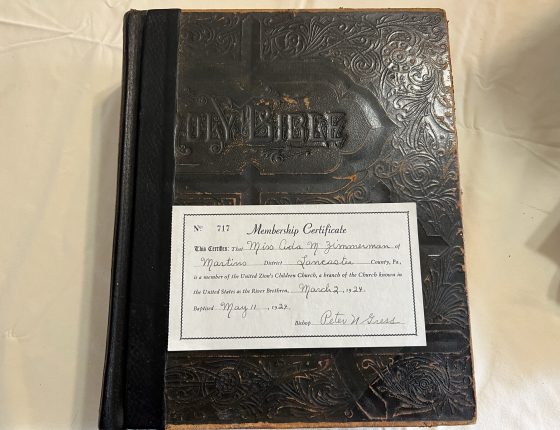 HOLY BIBLE
No 717 Membership Certificate
This Certifies: That Miss Ada M Zimmerman of
Martins District Lancaster County, Pa.,
is a member of the United Zion's Children Church, a branch of the Church known in
the United States as the River Brethren. March 2, 1924.
Baptized May 11, 1924.
Bishop Peter N Gress